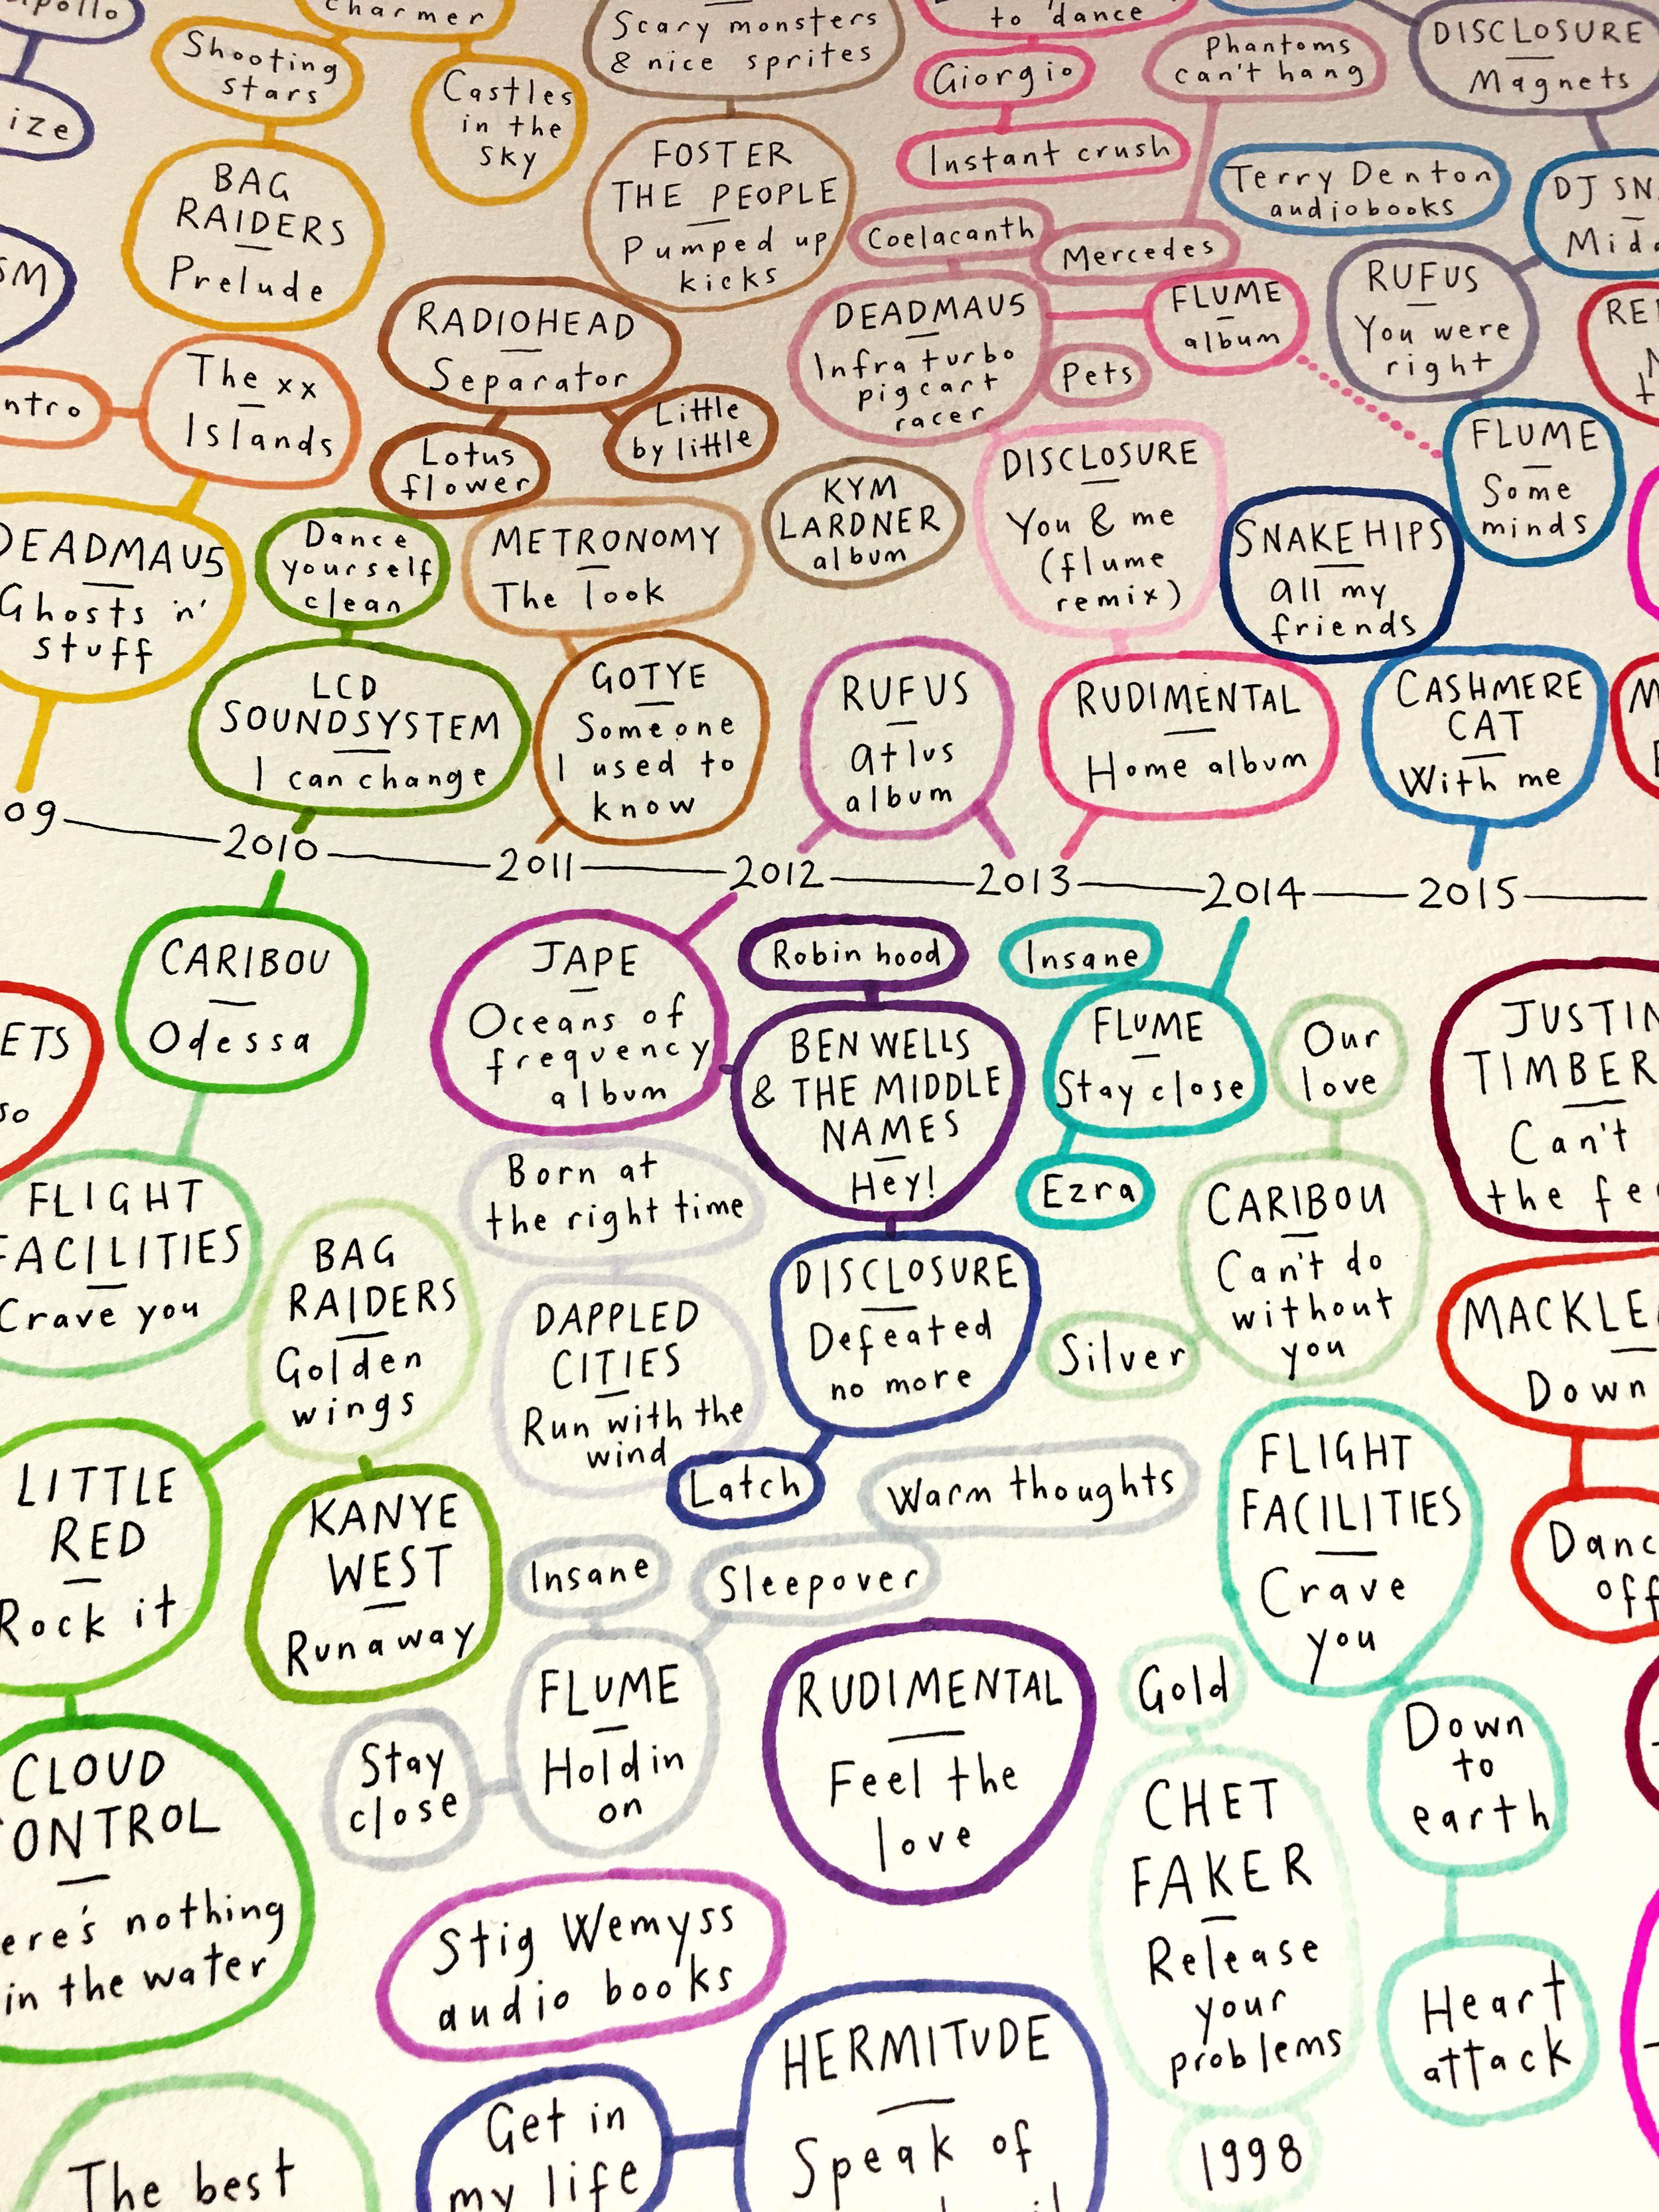 apollo
charmer
Shooting
stars
Castles
in the
sky
Scary monsters
& nice sprites
to dance
Giorgio
Instant crush
Phantoms
can't hang
DISCLOSURE
Magnets
ize
BAG
RAIDERS
Prelude
FOSTER
THE PEOPLE
Pumped up
kicks
Coelacanth
Mercedes
Terry Denton
audiobooks
DJ SN
Mid
SM
RADIOHEAD
Separator
Lotus
flower
Little
by little
DEADMAU5
Infra turbo
pigcart
racer
Pets
FLUME
album
RUFUS
You were
right
RE
ntro
The xx
Islands
KYM
LARDNER
album
DISCLOSURE
You & me
(flume
remix)
FLUME
Some
minds
DEADMAU5
Ghosts 'n'
stuff
Dance
yourself
clean
METRONOMY
The look
SNAKEHIPS
All my
friends
LCD
SOUNDSYSTEM
I can change
GOTYE
Someone
I used to
know
RUFUS
Atlus
album
RUDIMENTAL
Home album
CASHMERE
CAT
With me
M
09 2010 2011 2012 2013 2014 2015
CARIBOU
Odessa
JAPE
Oceans of
frequency
album
Robin hood
BEN WELLS
& THE MIDDLE
NAMES
Hey!
Insane
FLUME
Stay close
Ezra
Our
love
JUSTIN
TIMBER
Can't
the fe
ETS
so
FLIGHT
FACILITIES
Crave you
BAG
RAIDERS
Golden
wings
Born at
the right time
DAPPLED
CITIES
Run with the
wind
DISCLOSURE
Defeated
no more
Latch
CARIBOU
Can't do
without
you
Silver
MACKLE
Down
LITTLE
RED
Rock it
KANYE
WEST
Runaway
Insane
Sleepover
Warm thoughts
FLIGHT
FACILITIES
Crave
you
Danc
off
FLUME
Holdin
on
Stay
close
RUDIMENTAL
Feel the
love
Gold
CHET
FAKER
Release
your
problems
1998
Down
to
earth
Heart
attack
CLOUD
CONTROL
ere's nothing
in the water
Stig Wemyss
audio books
HERMITUDE
Speak of
Get in
my life
The best